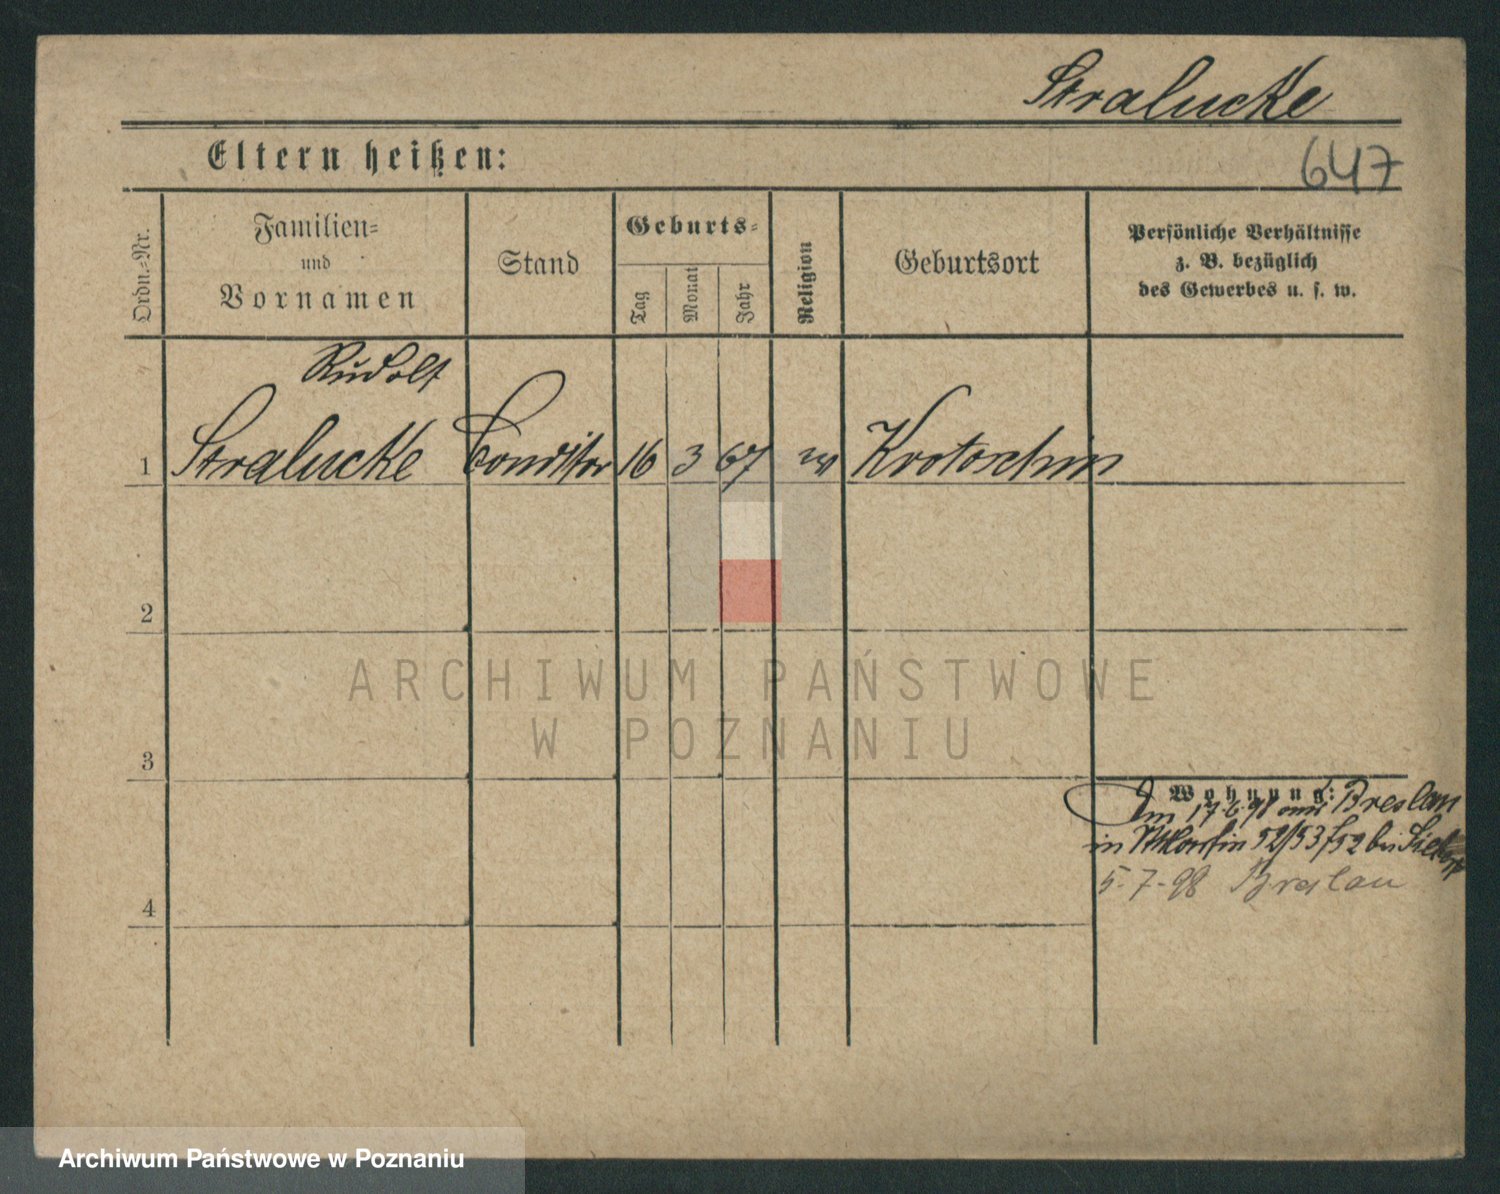 Stralucke
Eltern heißen:
647
Ordn.=Nr.
Familien=
und
Vornamen
Stand
Geburts=
Tag
Monat
Jahr
Religion
Geburtsort
Persönliche Verhältnisse
z. B. bezüglich
des Gewerbes u. s. w.
Rudolf
1 Stralucke Conditor 16 3 67 Krotoschin
2
3
4
ARCHIWUM PAŃSTWOWE
W POZNANIU
Wohnung:
17.6.98 aus Breslau
in Martin 52/53 bei
5-7-98 Breslau
Archiwum Państwowe w Poznaniu